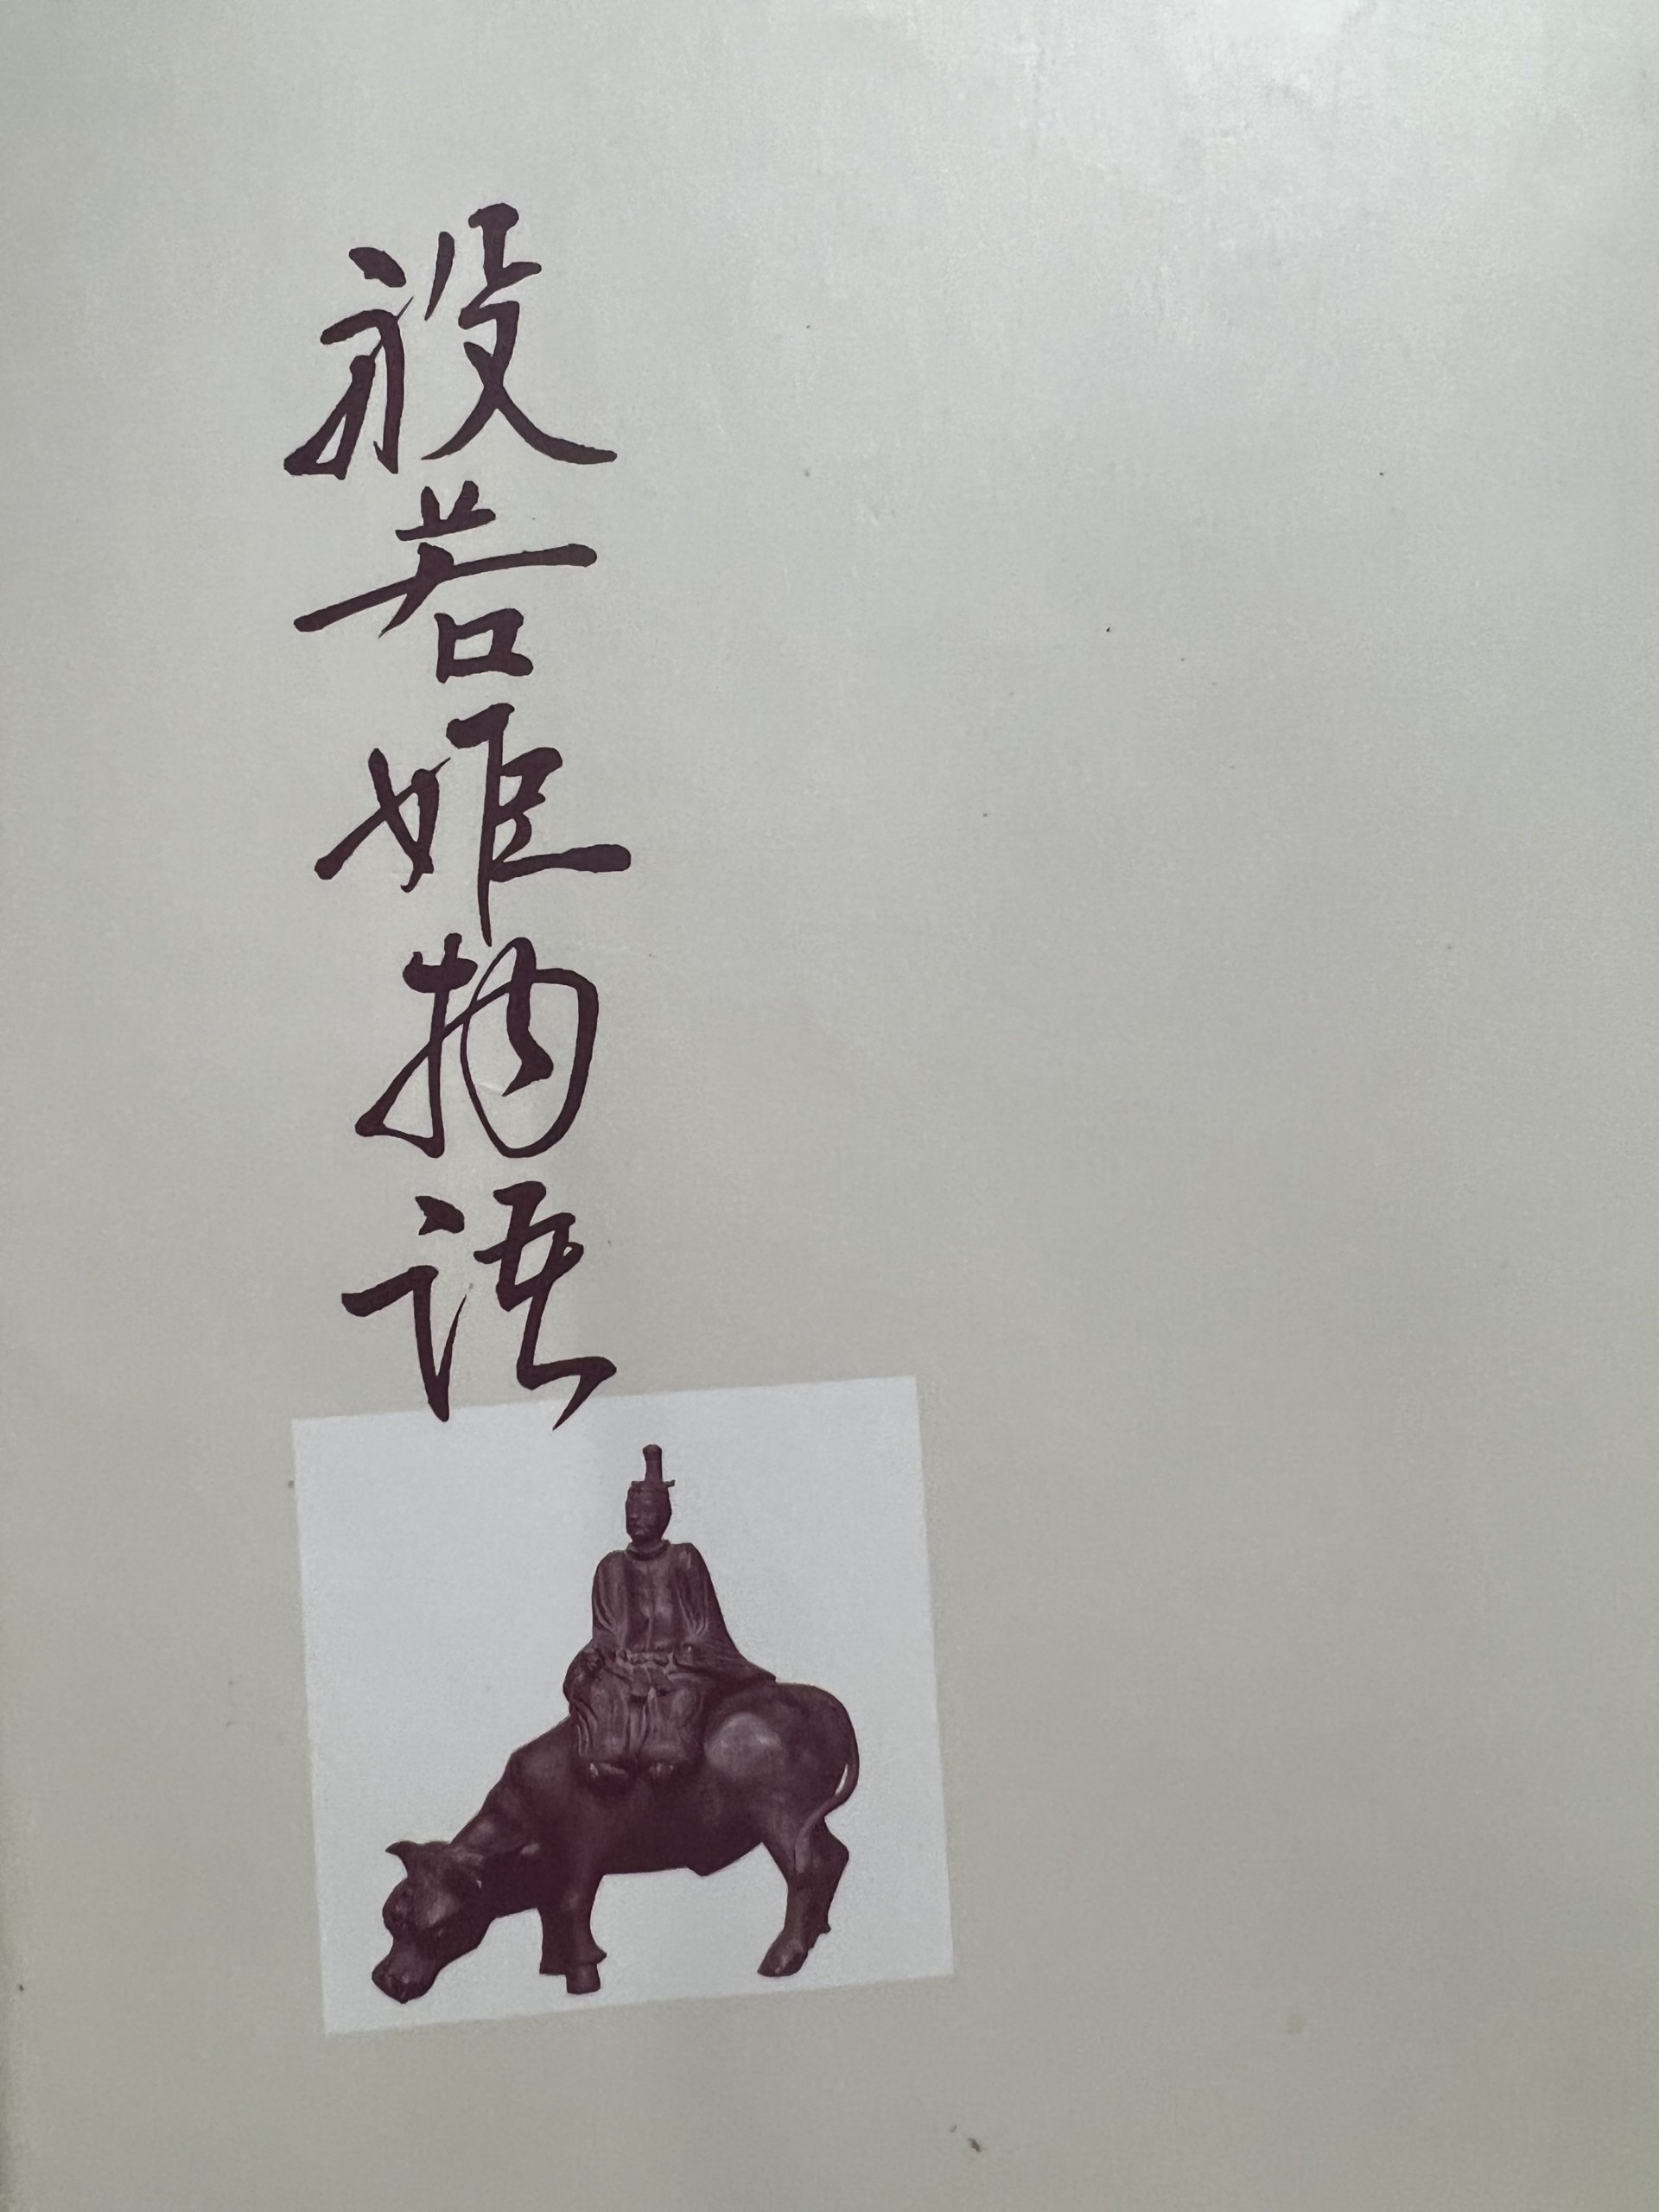 般若姫物語